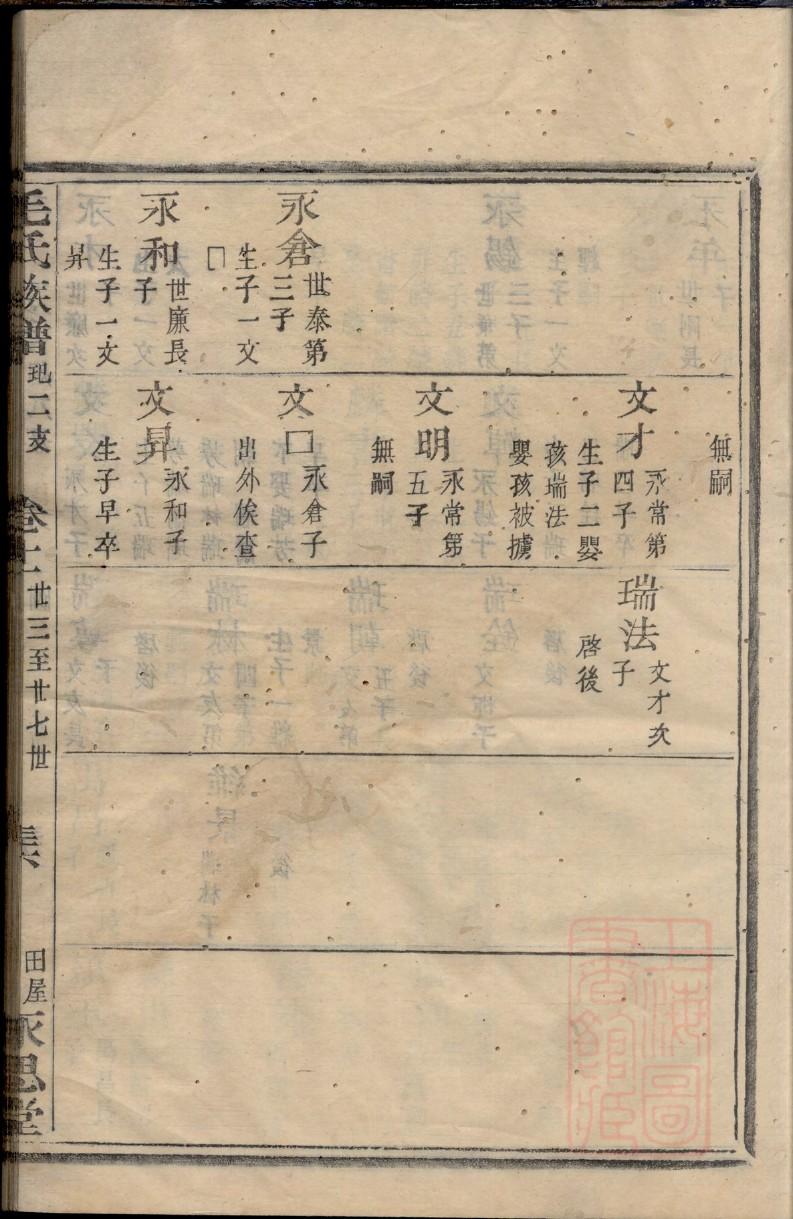 永倉
世泰第
三子
生子一文
口
永和
世廉長
子
生子一文
昇
無嗣
文才
永常第
四子
生子二嬰
孩瑞法
嬰孩被擄
文明
永常第
五子
無嗣
文口
永倉子
出外俟查
文昇
永和子
生子早卒
瑞法
文才次
子
啓後
毛氏族譜
二支
卷十
廿三至廿七世
田屋
永思堂
上海圖
書館藏